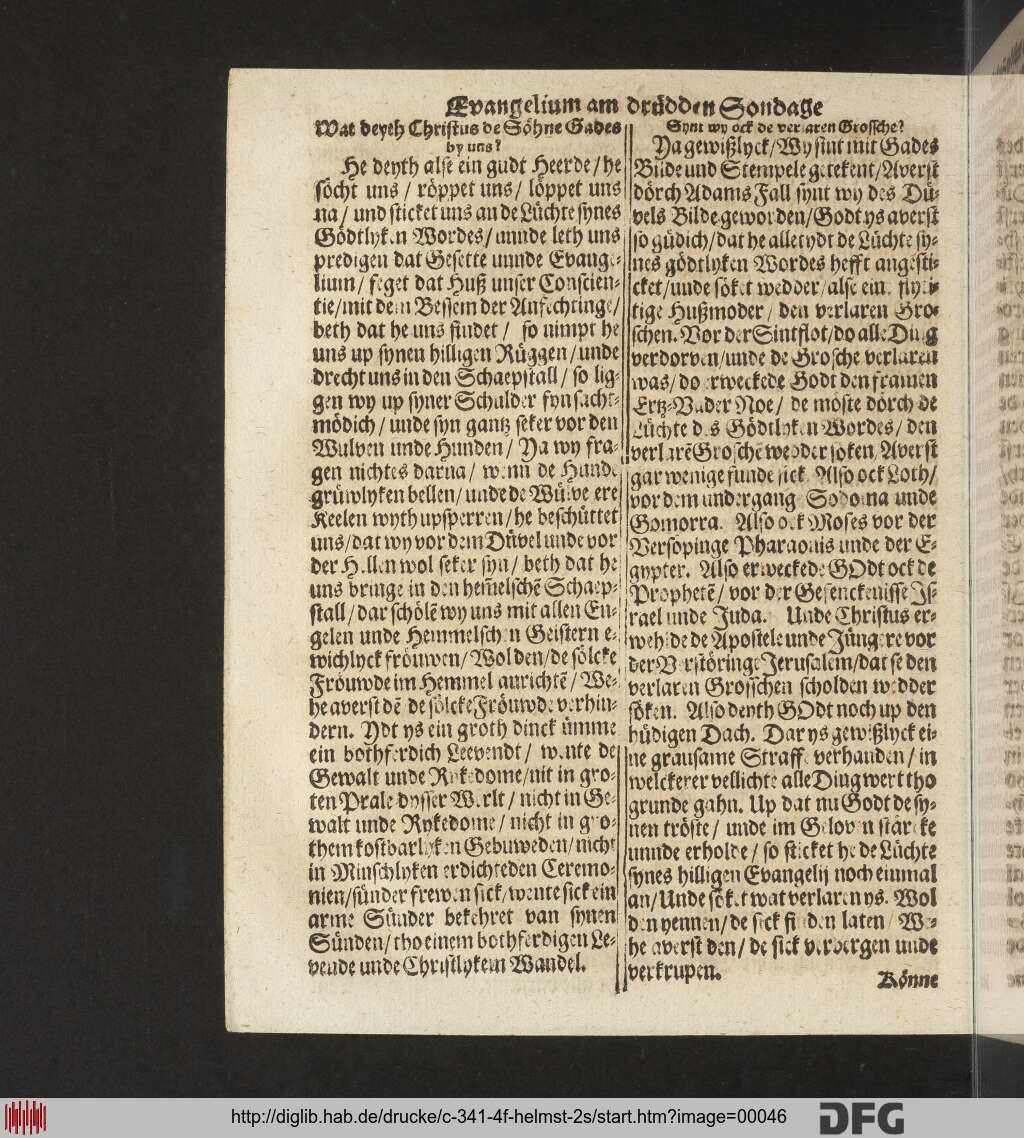 Evangelium am drüdden Sondage
Wat deyth Christus de Söhne Gades
by uns?
He deyth alse ein gudt Heerde/ he
söcht uns / röppet uns / löppet uns
na / und sticket uns an de Lüchte synes
Gödtlyken Wordes/ unnde leth uns
predigen dat Gesette unnde Evange-
lium / feget dat Huß unser Conscien-
tie/ mit dem Bessem der Anfechtinge/
beth dat he uns findet / so nimpt he
uns up synen hilligen Rüggen / unde
drecht uns in den Schaepstall / so lig-
gen wy up syner Schulder fyn sacht-
mödich / unde syn gantz seker vor den
Wulven unde Hunden / Ya wy fra-
gen nichtes darna / wenn de Hunde
grüwlyken bellen/ unde de Wülve ere
Keelen wyth upsperren / he beschüttet
uns/ dat wy vor dem Düvel unde vor
der Hellen wol seker syn / beth dat he
uns bringe in den hem̃elschẽ Schaep-
stall / dar schölẽ wy uns mit allen En-
gelen unde Hemmelschen Geistern e-
wichlyck fröuwen / Wol den / de sölcke
Fröuwde im Hemmel anrichtẽ / We-
he averst dẽ de sölcke Fröuwde verhin-
dern. Ydt ys ein groth dinck ümme
ein bothferdich Leevendt / wente de
Gewalt unde Rykedome / nit in gro-
ten Prale dysser Werlt / nicht in Ge-
walt unde Rykedome / nicht in gro-
them kostbarlyken Gebuweden/ nicht
in Minschlyken erdichteden Ceremo-
nien/ sünder frewen sick/ wente sick ein
arme Sünder bekehret van synen
Sünden/ tho einem bothferdigen Le-
vende unde Christlykem Wandel.
Synt wy ock de verlaren Grossche?
Ya gewißlyck/ Wy sint mit Gades
Bilde und Stempele getekent/ Averst
dörch Adams Fall synt wy des Dü-
vels Bilde geworden/ Godt ys averst
so güdich/ dat he alletydt de Lüchte sy-
nes gödtlyken Wordes hefft angesti-
cket/ unde söket wedder/ alse eine flyti-
tige Hußmoder / den verlaren Gro-
schen. Vor der Sintflot/ do alle Ding
verdorven/ unde de Grosche verlaren
was/ do erweckede Godt den framen
Ertz-Vader Noe / de moste dörch de
Lüchte des Gödtlyken Wordes / den
verlarẽ Groschẽ wedder söken/ Averst
gar wenige funde sick. Also ock Loth/
vor dem undergang Sodoma unde
Gomorra. Also ock Moses vor der
Versopinge Pharaonis unde der E-
gypter. Also erweckede GOdt ock de
Prophetẽ / vor der Gefenckenisse Js-
rael unde Juda. Unde Christus er-
welede de Apostele unde Jüngere vor
der Verstöringe Jerusalem/ dat se den
verlaren Grosschen scholden wedder
söken. Also deyth GOdt noch up den
hüdigen Dach. Dar ys gewißlyck ei-
ne grausame Straffe verhanden / in
welckerer vellichte alle Ding wert tho
grunde gahn. Up dat nu Godt de sy-
nen tröste / unde im Geloven stärcke
unnde erholde / so sticket he de Lüchte
synes hilligen Evangelij noch einmal
an/ Unde söket wat verlaren ys. Wol
den yennen/ de sick finden laten / We-
he averst den / de sick verbergen unde
verkrupen.
Könne
http://diglib.hab.de/drucke/c-341-4f-helmst-2s/start.htm?image=00046
DFG